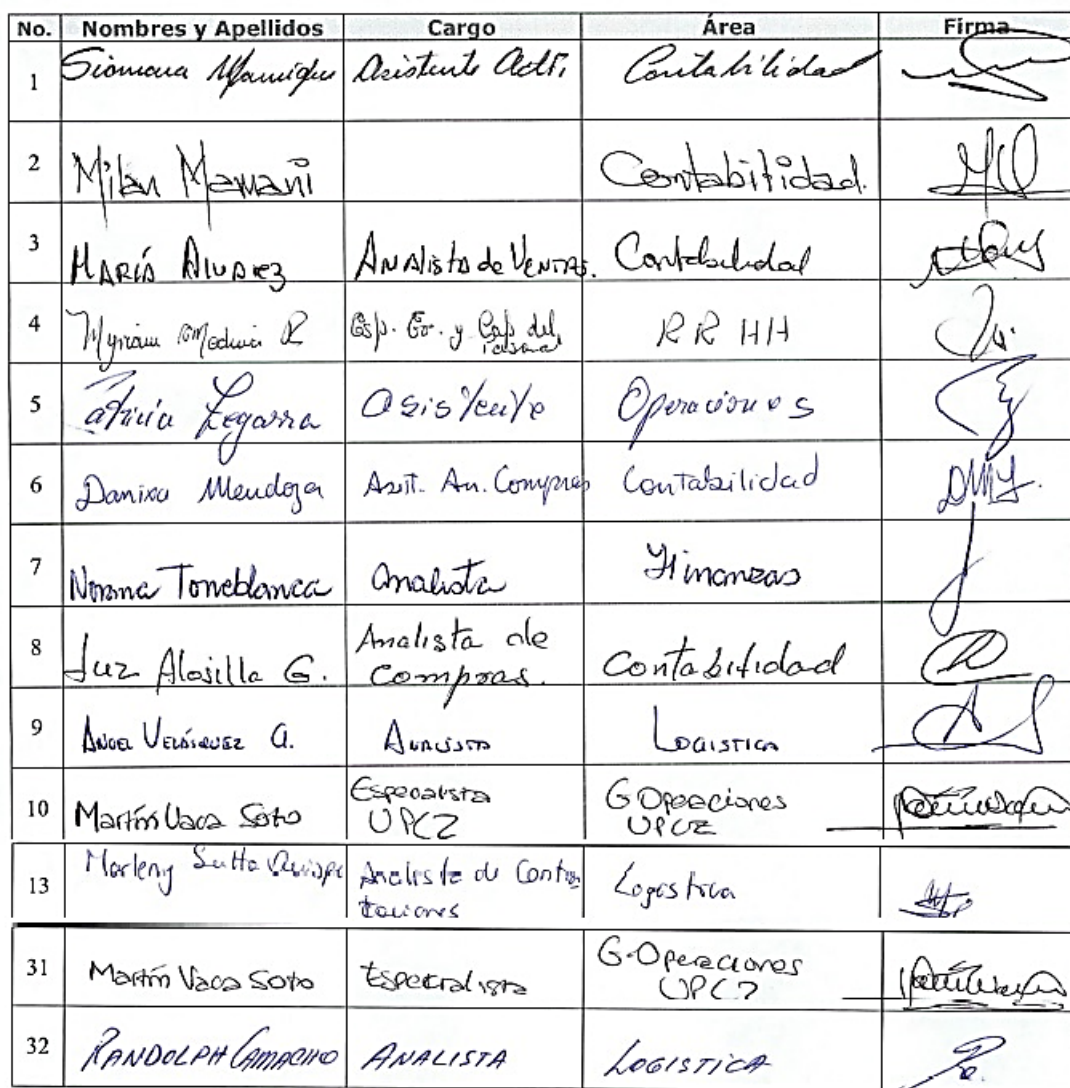 No. Nombres y Apellidos Cargo Área Firma
1 Siomara Manrique Asistente Adm. Contabilidad
2 Milan Mamani Contabilidad.
3 MARÍA Alvarez Analista de Ventas. Contabilidad
4 Myriam Medina R Esp. Ev. y Cap. del
Personal RR HH
5 Patricia Legarra Asistente Operaciones
6 Danixa Mendoza Asist. An. Compras Contabilidad
7 Norma Torreblanca Analista Finanzas
8 Luz Alosilla G. Analista de
Compras. Contabilidad
9 Angel Velásquez A. Analista Logistica
10 Martín Vaca Soto Especialista
UPCZ G Operaciones
UPCZ
13 Marleny Sutta Quispe Analista de Contra
taciones Logistica
31 Martín Vaca Soto Especialista G. Operaciones
UPCZ
32 RANDOLPH CAMACHO ANALISTA LOGISTICA